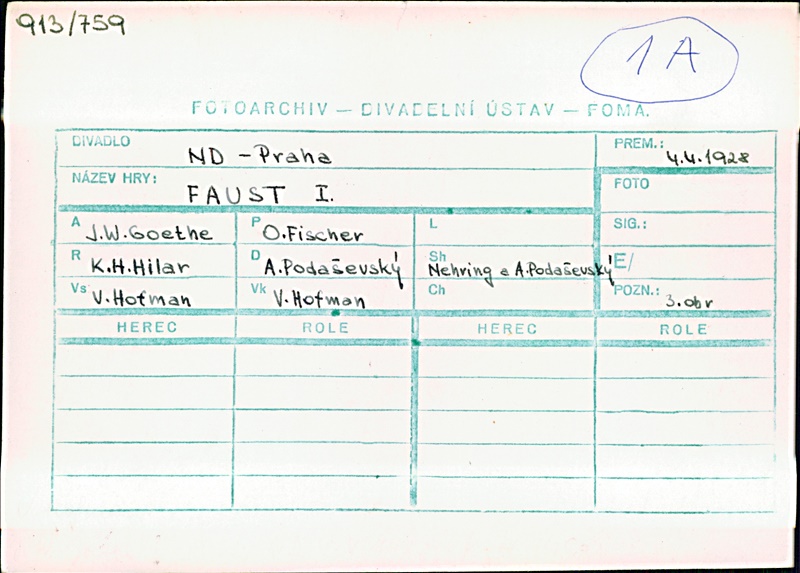 913/759
1A
FOTOARCHIV — DIVADELNÍ ÚSTAV — FOMA.
DIVADLO ND - Praha PREM.: 4.4.1928
NÁZEV HRY: FAUST I. FOTO
A J.W.Goethe P O.Fischer L SIG.:
R K.H.Hilar D A.Podaševský Sh Nehring a A.Podaševský E/
Vs V.Hofman Vk V.Hofman Ch POZN.: 3.obr
HEREC ROLE HEREC ROLE